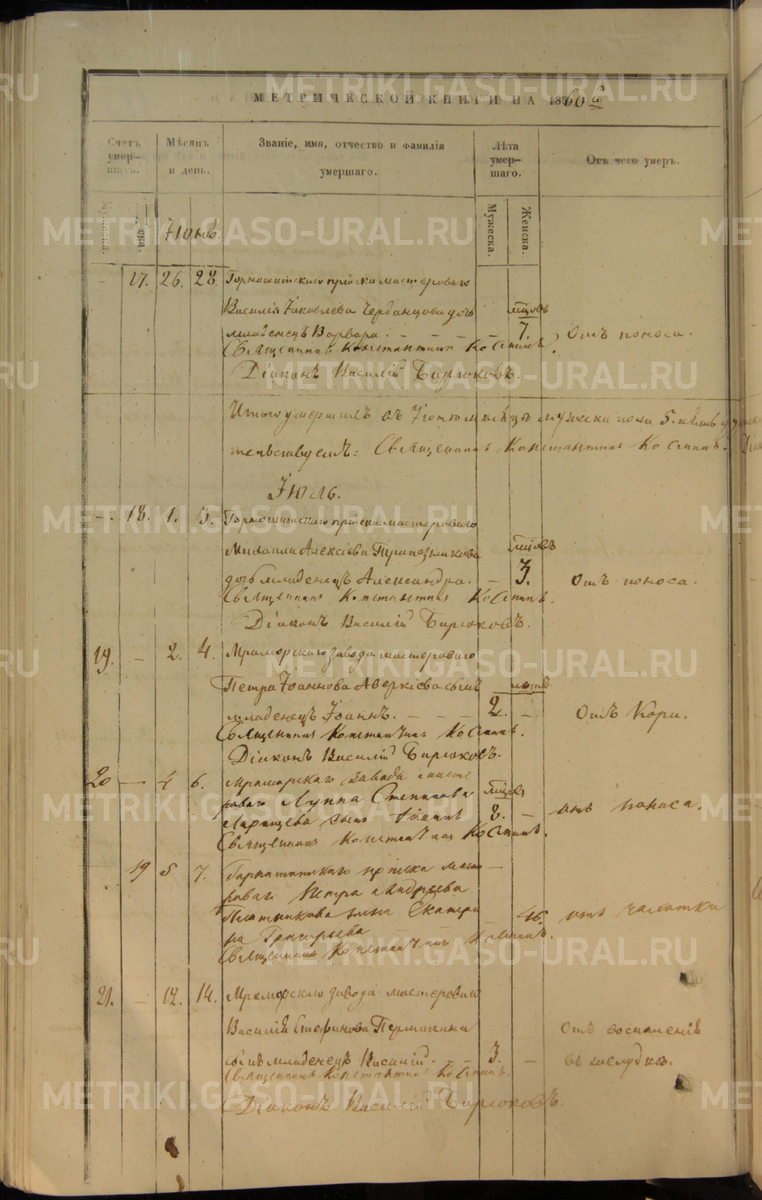 МЕТРИЧЕСКОЙ КНИГИ НА 1860 г.
Счетъ умер-шихъ.
Мѣсяцъ и день.
Званіе, имя, отчество и фамилія умершаго.
Лѣта умер-шаго.
Отъ чего умеръ.
Мужеска.
Женска.
Іюнь.
17. 26. 28. Горнощитскаго пріиска мастероваго
Василія Іаковлева дочь мѣсцовъ
младенецъ Варвара. 7. Отъ поноса.
Священникъ Константинъ Косминъ.
Діаконъ Василій Бирюковъ.
Итого умершихъ въ Іюнѣ мѣсяцѣ мужеска пола 5.
Священникъ Константинъ Косминъ.
Іюль.
18. 1. 3. Горнощитскаго пріиска мастероваго
Михаила Алексіева мѣсцовъ
дочь младенецъ Александра. 3. Отъ поноса.
Священникъ Константинъ Косминъ.
Діаконъ Василій Бирюковъ.
19. 2. 4. Мраморскаго завода мастероваго
Петра Іоаннова Аверкіева сынъ лѣтъ
младенецъ Іоаннъ. 2. Отъ Кори.
Священникъ Константинъ Косминъ.
Діаконъ Василій Бирюковъ.
20 4 6. Мраморскаго завода масте
роваго Луппа Степанова мѣсцовъ
сынъ Іоаннъ 8. отъ поноса.
Священникъ Константинъ Косминъ.
19 5 7. Горнощитскаго пріиска масте
роваго Петра Андреева
Плотникова жена Екатери
на Григорьева 46. отъ чахотки
Священникъ Константинъ Косминъ.
21. 12. 14. Мраморскаго завода мастероваго
Василія Стефанова Пермикина Отъ воспаленія
сынъ младенецъ 3. въ желудкѣ.
Священникъ Константинъ Косминъ.
Діаконъ Василій Бирюковъ.
METRIKI.GASO-URAL.RU